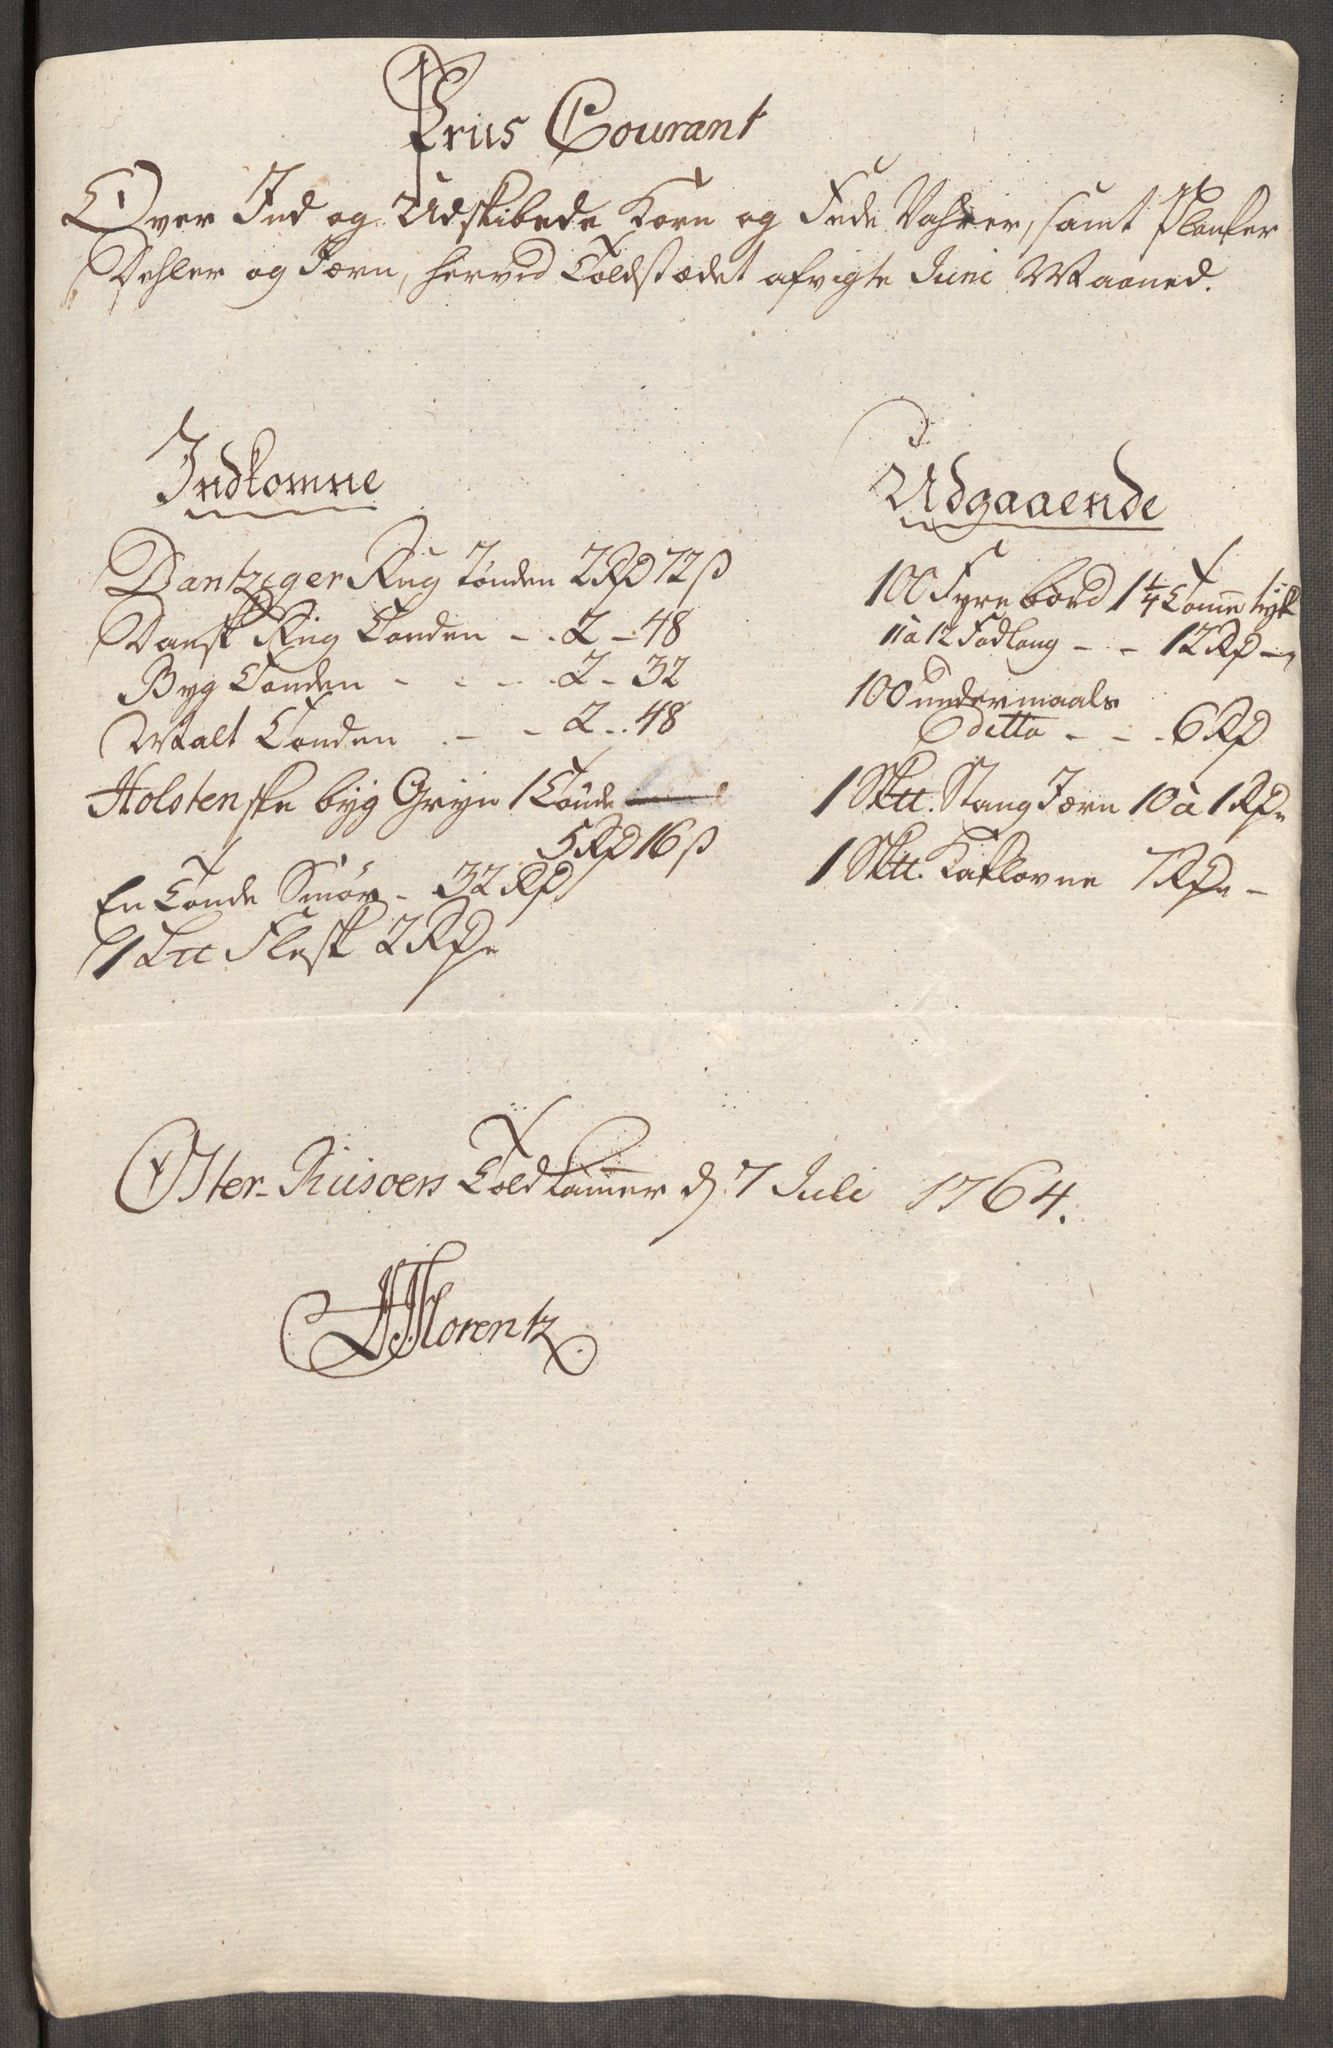 Priis Courant
Over Ind og Udskibede Korn og Fede Vahrer, samt Planker
Dehler og Jærn, herved Toldstædet afvigte Juni Maaned.
Indkomne
Dantziger Rug Tønden 2 Rd 72 ß
Dansk Rug Tønden - . 2 - 48
Byg Tønden - - - - . 2 - 32
Malt Tønden . - - 2 - . 48
Holstenske byg Gryn 1 Tønde
5 Rd 16 ß
En Tønde Smør - 32 Rd
1 L℔ Flesk 2 Rd
Udgaaende
100 Fyrrebord 1 1/4 Tomme tyk
11 à 12 Fod lang - - 12 Rd -
100 undermaals
ditto - - . 6 Rd
1 Sk℔. Stang Jærn 10 à 1 Rd
1 Sk℔. Kaklovne 7 Rd -
Øster-Riisøers Toldkammer d. 7 Juli 1764.
Florentz